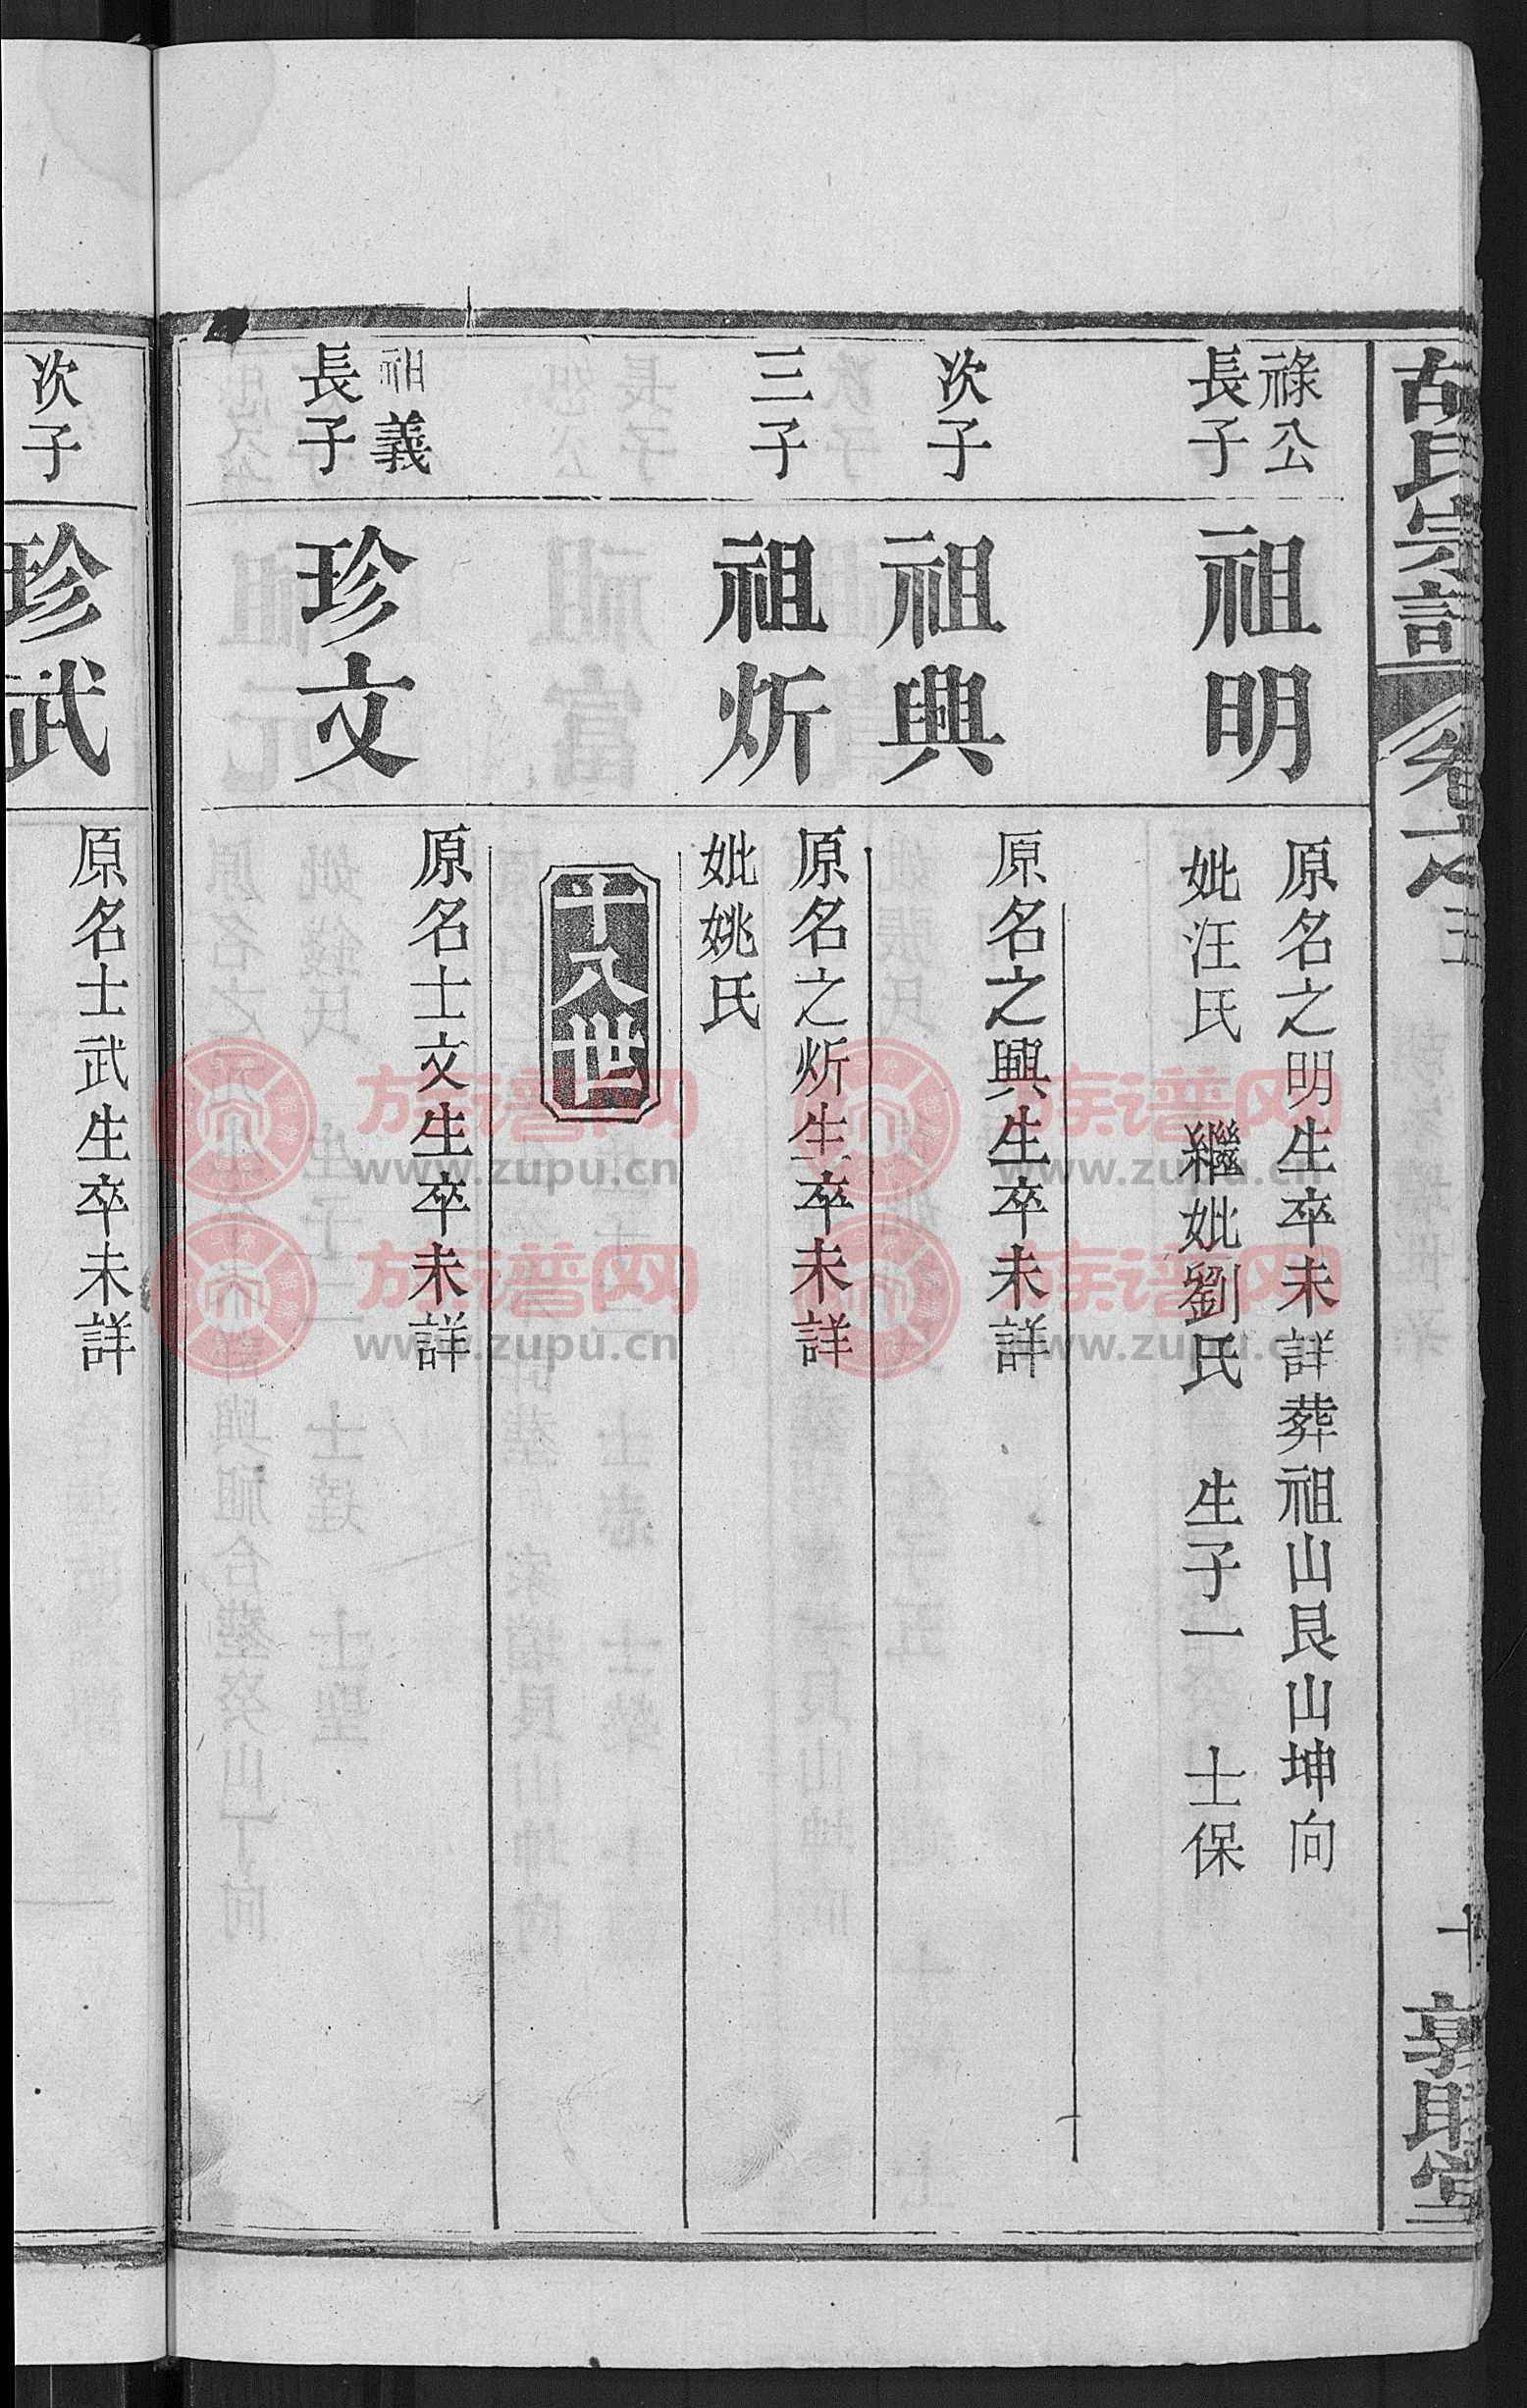 祿公
長子
祖明
原名之明生卒未詳葬祖山艮山坤向
妣汪氏 繼妣劉氏 生子一 士保
次子
祖興
原名之興生卒未詳
三子
祖炘
原名之炘生卒未詳
妣姚氏
十八世
祖義
長子
珍文
原名士文生卒未詳
次子
珍武
原名士武生卒未詳
族谱网
www.zupu.cn
族谱网
www.zupu.cn
族谱网
www.zupu.cn
族谱网
www.zupu.cn